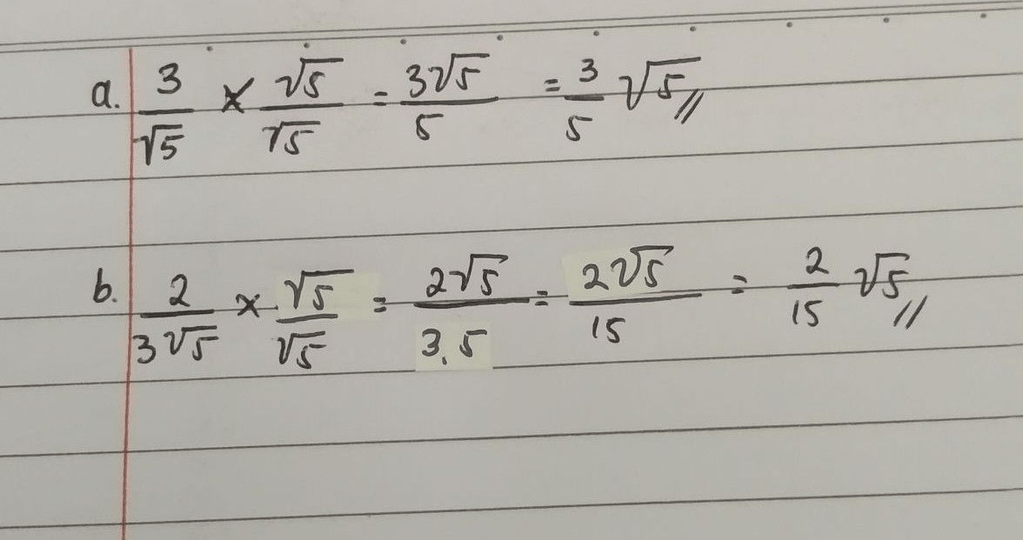 a. 3/√5 × √5/√5 = 3√5/5 = 3/5 √5 //
b. 2/3√5 × √5/√5 = 2√5/3.5 = 2√5/15 = 2/15 √5 //